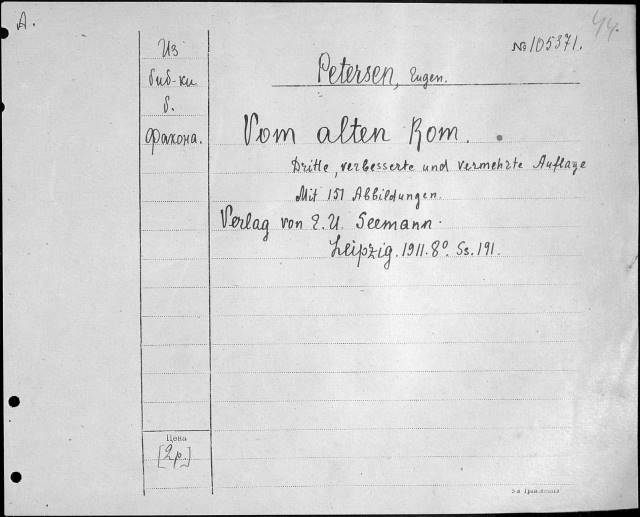 А.
44.
№ 105371.
Из
биб-ки
б.
Фахона.
Petersen, Eugen.
Vom alten Rom.
Dritte, verbesserte und vermehrte Auflage
Mit 151 Abbildungen.
Verlag von E. U. Seemann.
Leipzig. 1911. 8°. Ss. 191.
Цена
[2 р.]